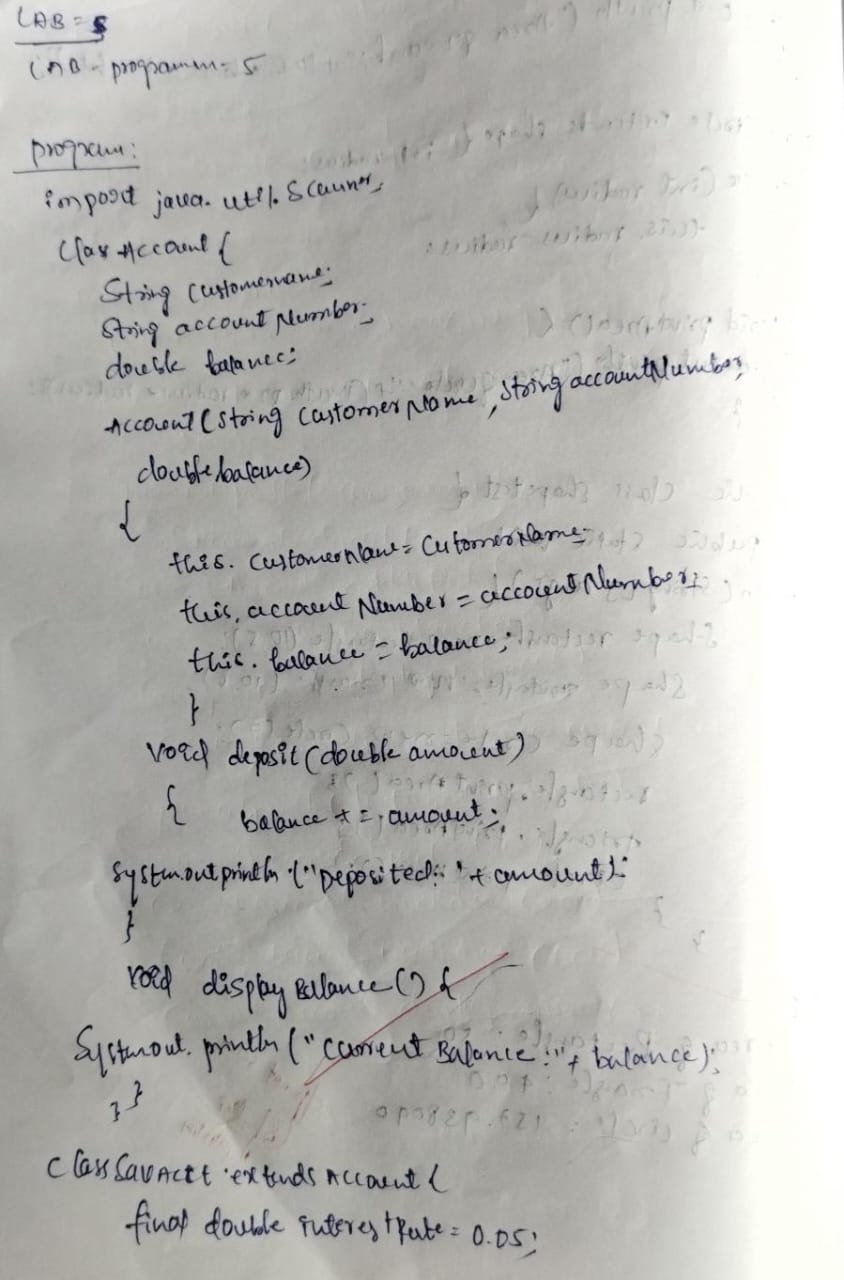 LAB = 5
LAB - programm - 5
program:
import java. util. Scanner;
Class Account {
String Customername;
String account Number;
double balance;
Account (String CustomerName, String accountNumber,
double balance)
{
this. CustomerName = CutomerName;
this. account Number = accountNumber;
this. balance = balance;
}
void deposit (double amount)
{ balance += amount;
System.out println ("Deposited: "+ amount);
}
void display Balance () {
System.out. println ("Current Balance:"+ balance);
} }
Class SavAcct extends Account {
final double interestRate = 0.05;